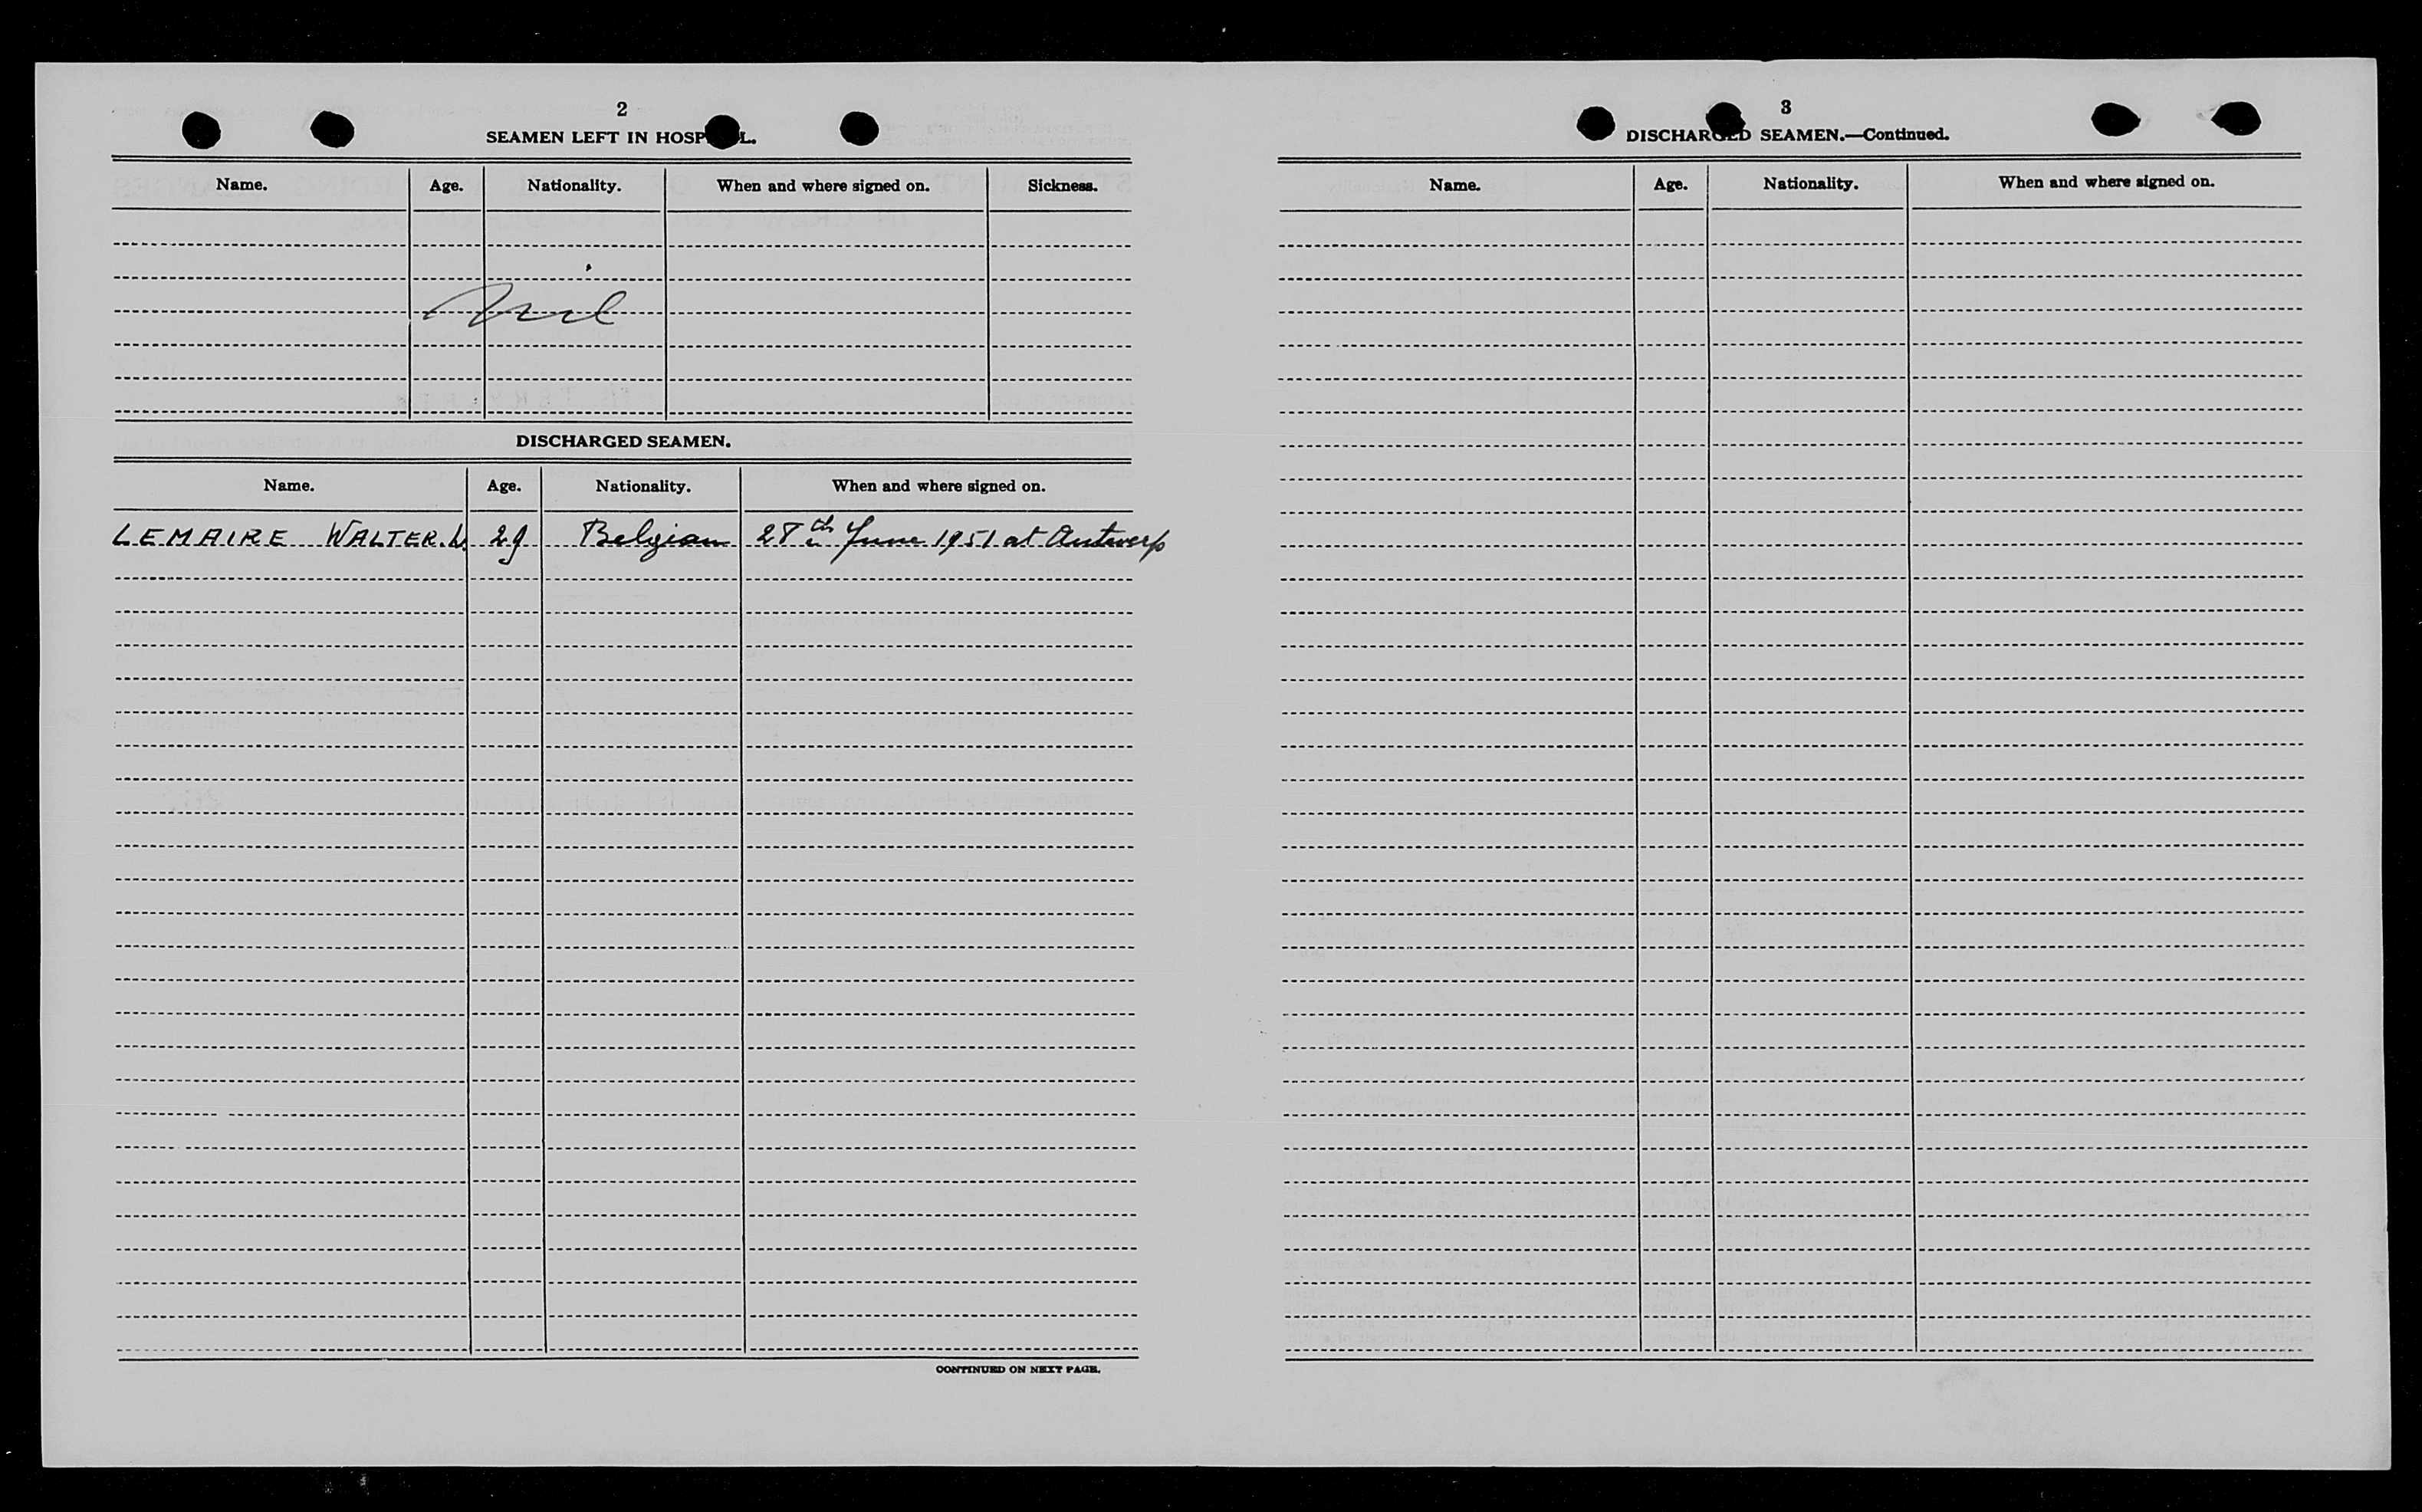 2
SEAMEN LEFT IN HOSP L.
Name. Age. Nationality. When and where signed on. Sickness.
Nil
DISCHARGED SEAMEN.
Name. Age. Nationality. When and where signed on.
LEMAIRE WALTER. L. 29 Belgian 28th June 1951 at Antwerp
CONTINUED ON NEXT PAGE.
3
DISCHARGED SEAMEN.—Continued.
Name. Age. Nationality. When and where signed on.